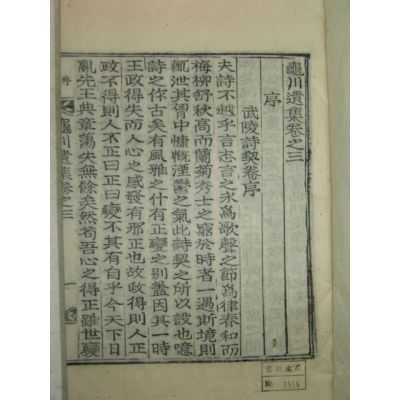 龜川遺集卷之三
序
武陵詩契卷序
夫詩不越乎言志言之永爲歌聲之節爲律春和而
梅柳舒秋高而蘭菊秀士之窮於時者一遇斯境則
輒泄其胷中慷慨湮鬱之氣此詩契之所以設也噫
詩之作古矣有風雅之什有正變之別盖因其一時
王政得失而人心之感發有邪正也故政得則人正
政不得則人不正曰正曰變不其有自乎今天下日
亂先王典章蕩失無餘矣然苟吾心之得正雖世變
序
龜川遺集卷之三
一
No 1516